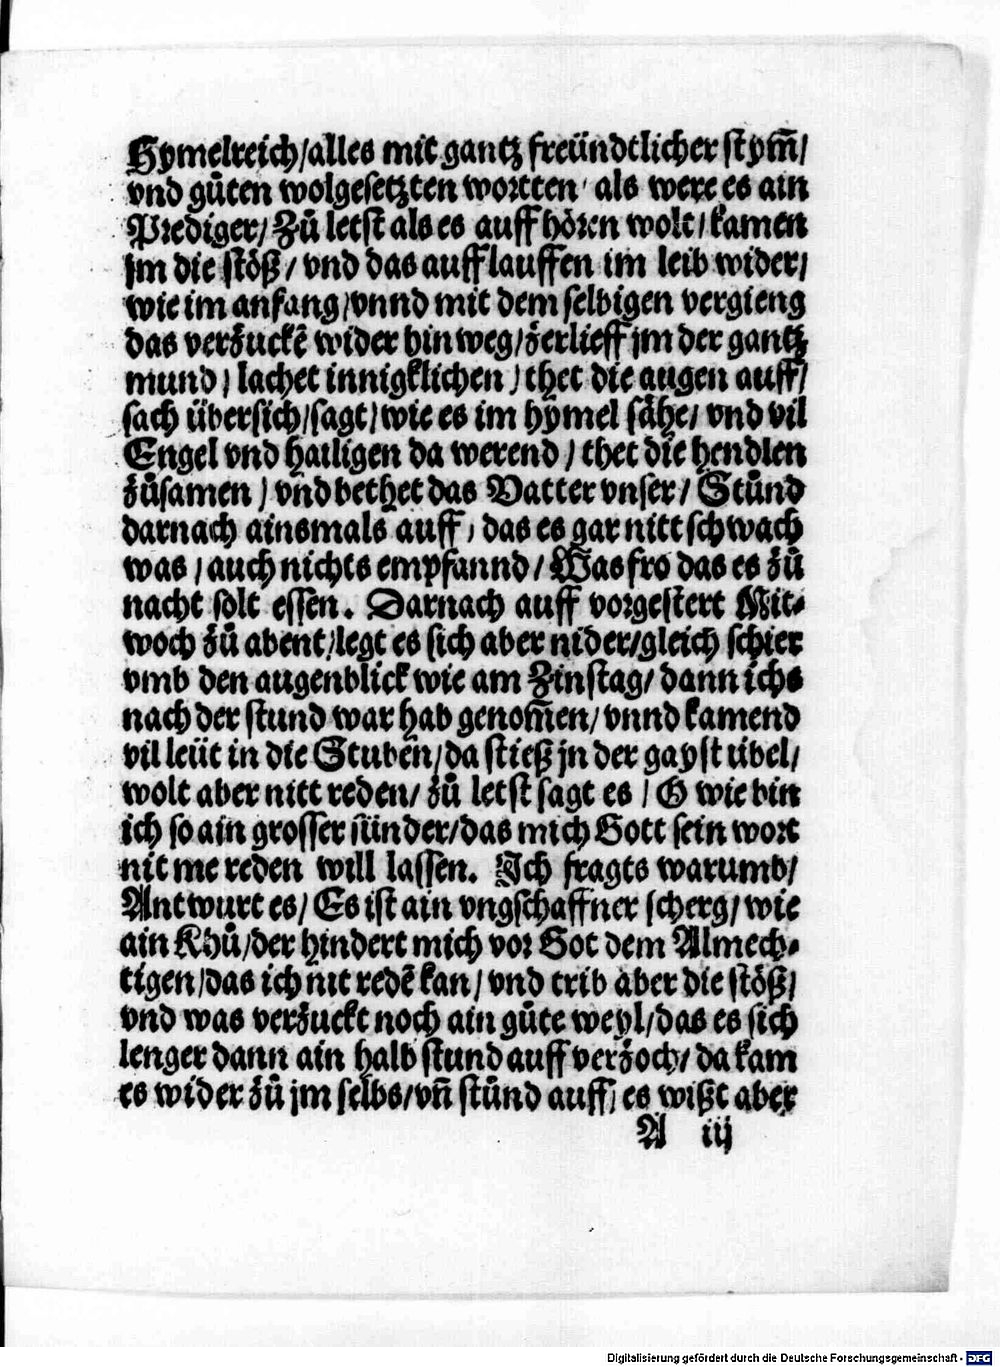 Hymelreich/alles mit gantz freündtlicher stym̃/
vnd gůten wolgesetzten wortten/ als were es ain
Prediger/ Zů letst als es auff hören wolt/ kamen
jm die stöß/ vnd das aufflauffen im leib wider/
wie im anfang/vnnd mit dem selbigen vergieng
das verzuckẽ wider hinweg/zerlieff jm der gantz
mund/ lachet innigklichen/ thet die augen auff/
sach übersich/sagt/wie es im hymel sähe/ vnd vil
Engel vnd hailigen da werend/ thet die hendlen
zůsamen/ vnd bethet das Vatter vnser/ Stůnd
darnach ainsmals auff/ das es gar nitt schwach
was/ auch nichts empfannd/ Was fro das es zů
nacht solt essen. Darnach auff vorgestert Mit⸗
woch zů abent/legt es sich aber nider/gleich schier
vmb den augenblick wie am Zinstag/ dann ichs
nach der stund war hab genom̃en/ vnnd kamend
vil leüt in die Stuben/da stieß jn der gayst übel/
wolt aber nitt reden/ zů letst sagt es/ O wie bin
ich so ain grosser sünder/das mich Gott sein wort
nit me reden will lassen. Ich fragts warumb/
Antwurt es/ Es ist ain vngschaffner scherg/ wie
ain Khů/der hindert mich vor Got dem Almech⸗
tigen/das ich nit redẽ kan/ vnd trib aber die stöß/
vnd was verzuckt noch ain gůte weyl/das es sich
lenger dann ain halb stund auff verzoch/ da kam
es wider zů jm selbs/vñ stůnd auff/ es wißt aber
A iij
Digitalisierung gefördert durch die Deutsche Forschungsgemeinschaft - DFG